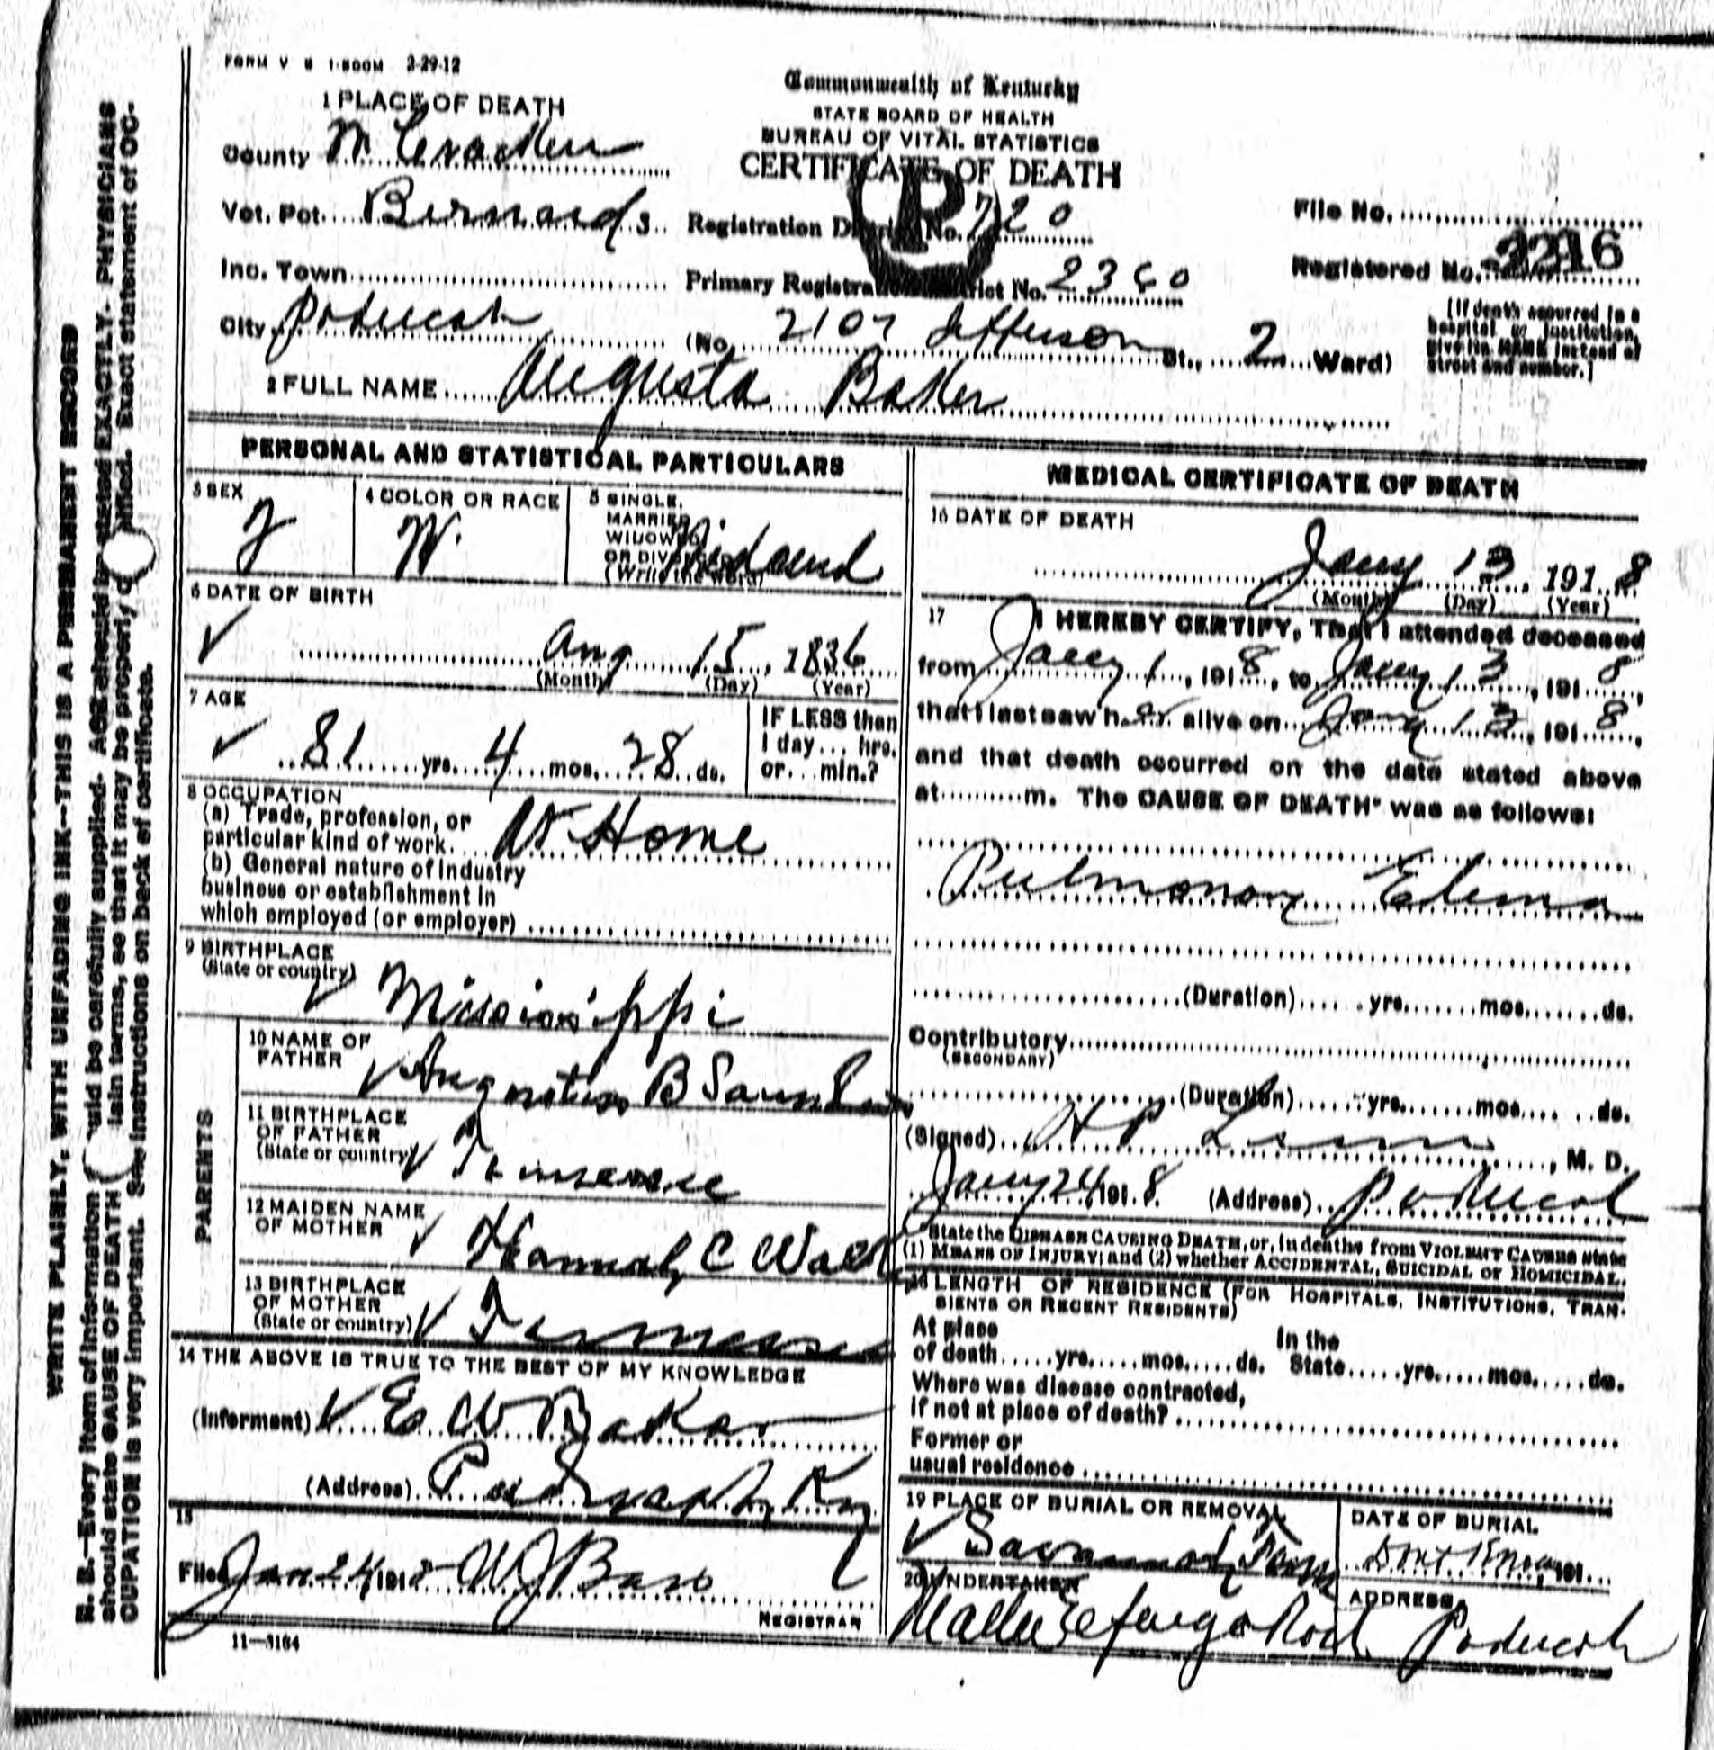 FORM V S 1-500M 3-29-12
Commonwealth of Kentucky
STATE BOARD OF HEALTH
BUREAU OF VITAL STATISTICS
CERTIFICATE OF DEATH
1 PLACE OF DEATH
County McCracken
Vot. Pct. Bernards
Registration District No. 720
File No.
Inc. Town
Primary Registration District No. 2360
Registered No.
City Paducah
(No. 2107 Jefferson St., 2 Ward)
[If death occurred in a hospital or institution, give its NAME instead of street and number.]
2 FULL NAME Augusta Baker
PERSONAL AND STATISTICAL PARTICULARS
3 SEX F
4 COLOR OR RACE W.
5 SINGLE, MARRIED, WIDOWED OR DIVORCED (Write the word)
6 DATE OF BIRTH
Aug 15, 1836
(Month) (Day) (Year)
7 AGE
81 yrs. 4 mos. 28 ds.
IF LESS than 1 day... hrs. or... min.?
8 OCCUPATION
(a) Trade, profession, or particular kind of work. At Home
(b) General nature of industry business or establishment in which employed (or employer)
9 BIRTHPLACE (State or country) Mississippi
PARENTS
10 NAME OF FATHER Augustus B Saunders
11 BIRTHPLACE OF FATHER (State or country) Tennessee
12 MAIDEN NAME OF MOTHER Hannah C
13 BIRTHPLACE OF MOTHER (State or country) Tennessee
14 THE ABOVE IS TRUE TO THE BEST OF MY KNOWLEDGE
(Informant) E W Baker
(Address) Paducah, Ky
15
Filed Jan 24 1918
REGISTRAR
11—3184
MEDICAL CERTIFICATE OF DEATH
16 DATE OF DEATH
Jany 13, 1918
(Month) (Day) (Year)
17 I HEREBY CERTIFY, That I attended deceased
from Jany 1, 1918, to Jany 13, 1918,
that I last saw her alive on Jany 13, 1918,
and that death occurred on the date stated above
at m. The CAUSE OF DEATH* was as follows:
Pulmonary Edema
(Duration) yrs. mos. ds.
Contributory
(SECONDARY)
(Duration) yrs. mos. ds.
(Signed) H P M. D.
Jany 24 1918 (Address) Paducah
*State the DISEASE CAUSING DEATH, or, in deaths from VIOLENT CAUSES state
(1) MEANS OF INJURY; and (2) whether ACCIDENTAL, SUICIDAL or HOMICIDAL.
18 LENGTH OF RESIDENCE (FOR HOSPITALS, INSTITUTIONS, TRANSIENTS OR RECENT RESIDENTS)
At place of death yrs. mos. ds. In the State yrs. mos. ds.
Where was disease contracted,
if not at place of death?
Former or
usual residence
19 PLACE OF BURIAL OR REMOVAL
DATE OF BURIAL
Dont Know, 191
20 UNDERTAKER
ADDRESS
Paducah
WRITE PLAINLY, WITH UNFADING INK—THIS IS A PERMANENT RECORD
N. B.—Every item of information should be carefully supplied. AGE should be stated EXACTLY. PHYSICIANS
should state CAUSE OF DEATH in plain terms, so that it may be properly classified. Exact statement of OC-
CUPATION is very important. See instructions on back of certificate.